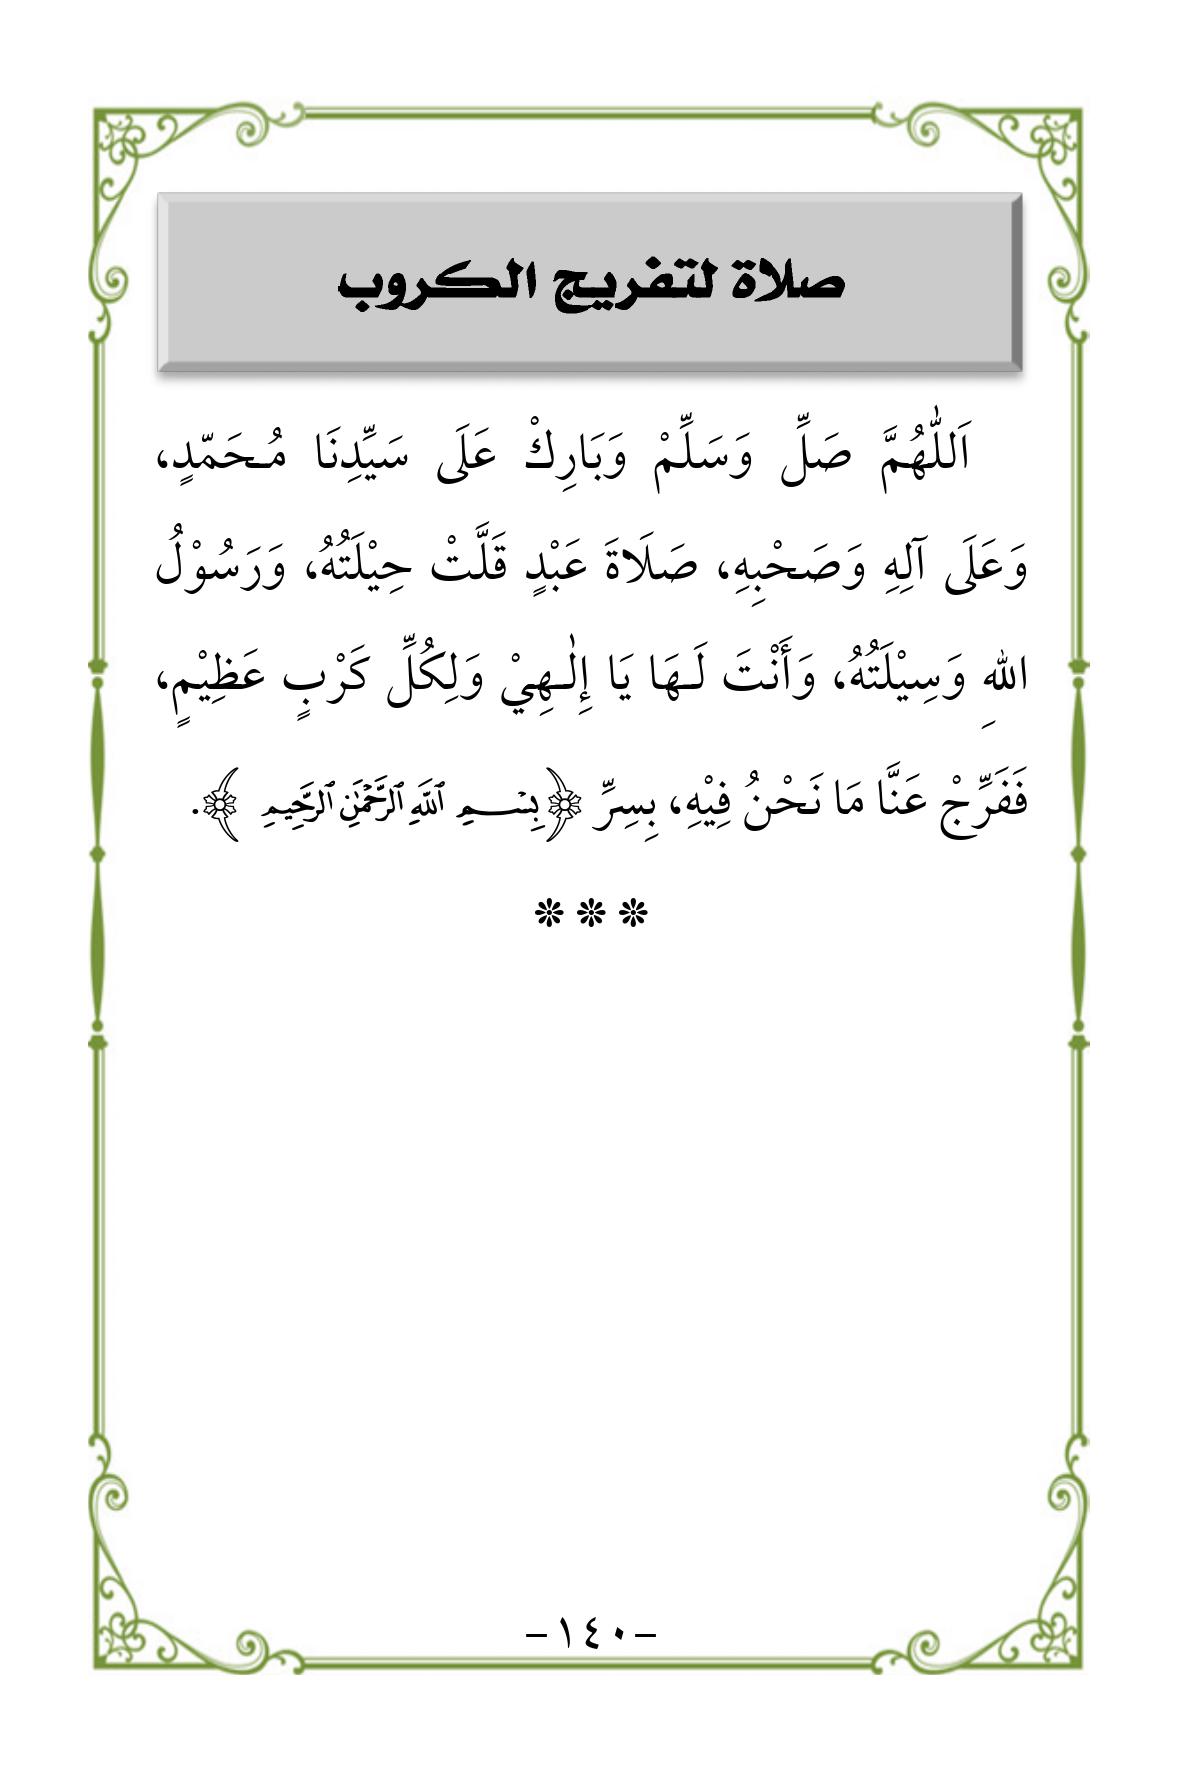 صلاة لتفريج الكروب
اَللّٰهُمَّ صَلِّ وَسَلِّمْ وَبَارِكْ عَلَى سَيِّدِنَا مُـحَمّدٍ،
وَعَلَى آلِهِ وَصَحْبِهِ، صَلَاةَ عَبْدٍ قَلَّتْ حِيْلَتُهُ، وَرَسُوْلُ
اللهِ وَسِيْلَتُهُ، وَأَنْتَ لَـهَا يَا إِلٰـهِيْ وَلِكُلِّ كَرْبٍ عَظِيْمٍ،
فَفَرِّجْ عَنَّا مَا نَحْنُ فِيْهِ، بِسِرِّ ﴿بِسْـــمِ ٱللَّهِ ٱلرَّحْمَٰنِ ٱلرَّحِيمِ ﴾.
❊ ❊ ❊
– ١٤٠ –